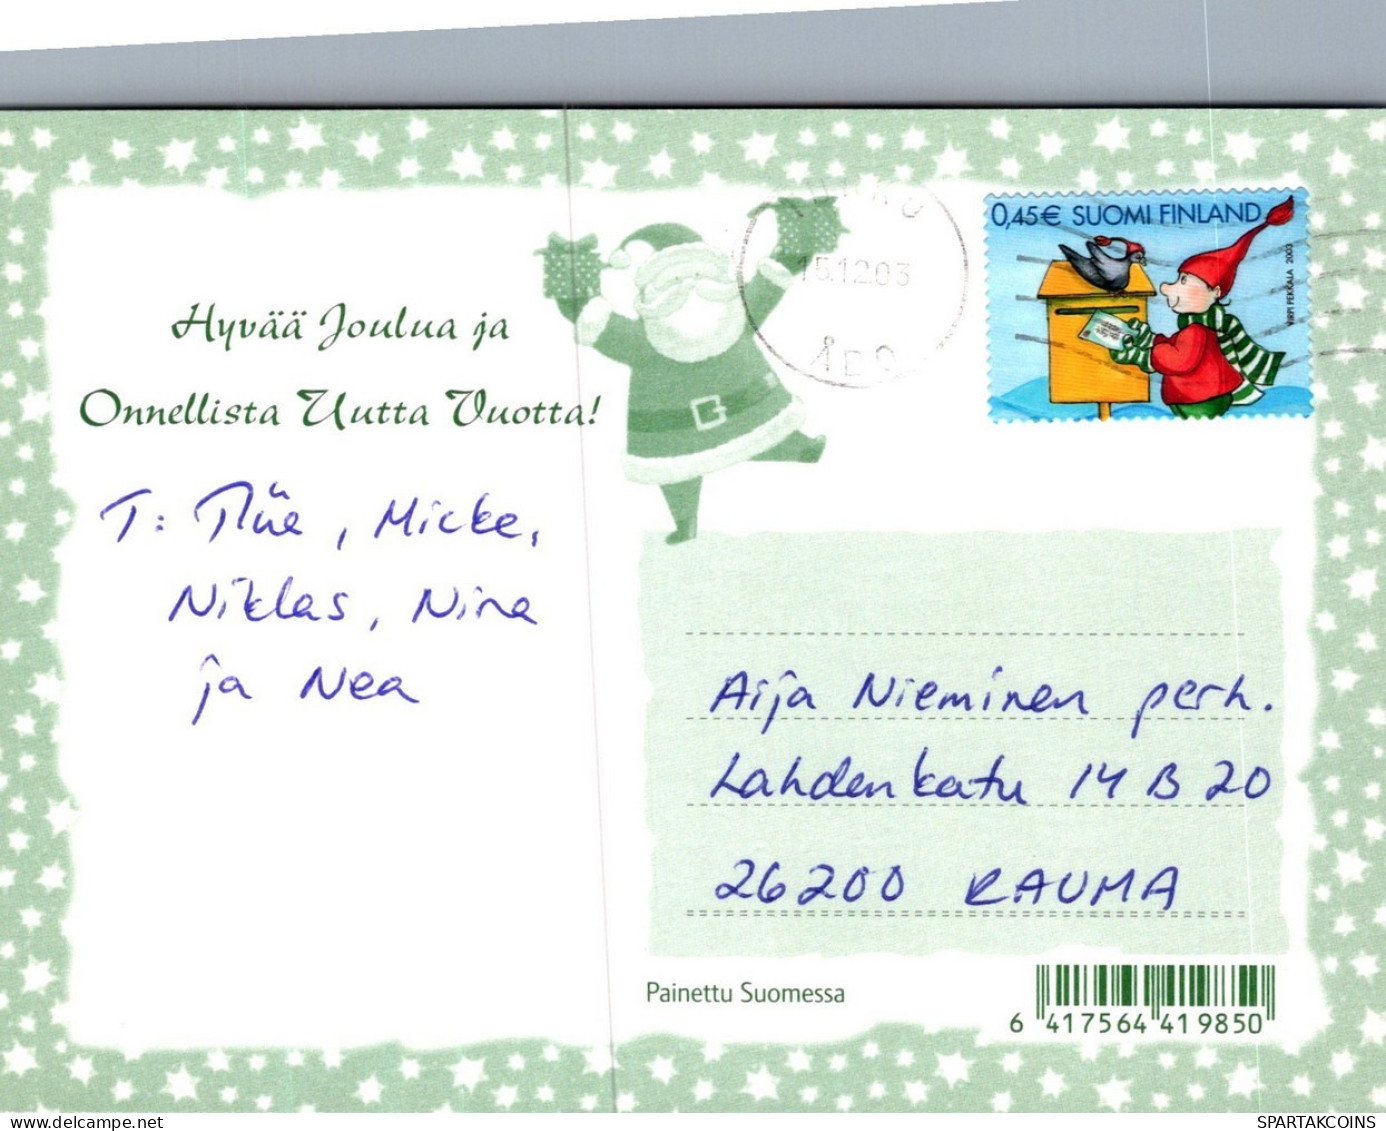 0,45€ SUOMI FINLAND
VIRPI PEKKALA 2003
15.12.03
Hyvää Joulua ja
Onnellista Uutta Vuotta!
T: Tiie, Micke,
Niklas, Nina
ja Nea
Aija Nieminen perh.
Lahdenkatu 14 B 20
26200 RAUMA
Painettu Suomessa
6 417564 419850
SPARTAKCOINS